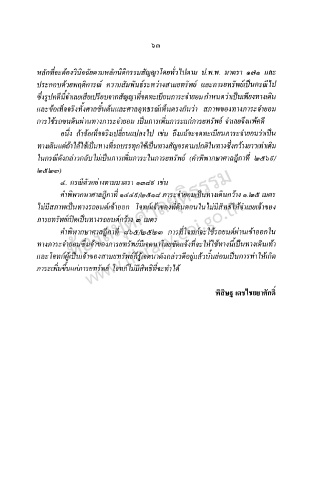 ๖๓
หลักที่จะต้องวินิจฉัยตามหลักนิติกรรมสัญญาโดยทั่วไปตาม ป.พ.พ. มาตรา ๑๗๑ และ
ประกอบด้วยพฤติการณ์ ความสัมพันธ์ระหว่างสามยทรัพย์ และภารยทรัพย์เป็นกรณีไป
ซึ่งรูปคดีนี้จำเลยเสียเปรียบจากสัญญาที่จดทะเบียนภาระจำยอมกำหนดว่าเป็นเพียงทางเดิน
และข้อเท็จจริงทั้งศาลชั้นต้นและศาลอุทธรณ์ฟังตรงกันว่า สภาพของทางภาระจำยอม
การใช้รถยนต์ผ่านทางภาระจำยอม เป็นการเพิ่มภาระแก่ภารยทรัพย์ จำเลยจึงแพ้คดี
อนึ่ง ถ้าข้อเท็จจริงเปลี่ยนแปลงไป เช่น ถึงแม้จดทะเบียนภาระจำยอมว่าเป็น
ทางเดินแต่ถ้าได้ใช้เป็นทางที่รถบรรทุกใช้เป็นทางสัญจรตามปกติในทางซึ่งกว้างยาวเท่าเดิม
ในกรณีดังกล่าวกลับไม่เป็นการเพิ่มภาระในภารยทรัพย์ (คำพิพากษาศาลฎีกาที่ ๒๕๖๕/
๒๕๒๓)
๔. กรณีตัวอย่างตามมาตรา ๑๓๘๘ เช่น
คำพิพากษาศาลฎีกาที่ ๑๘๔๕/๒๕๑๔ ภาระจำยอมเป็นทางเดินกว้าง ๑.๒๕ เมตร
ไม่มีสภาพเป็นทางรถยนต์เข้าออก โจทก์เจ้าของที่ดินตอนในไม่มีสิทธิให้จำเลยเจ้าของ
ภารยทรัพย์เปิดเป็นทางรถยนต์กว้าง ๓ เมตร
คำพิพากษาศาลฎีกาที่ ๘๖๕/๒๕๒๓ การที่โจทก์จะใช้รถยนต์ผ่านเข้าออกใน
ทางภาระจำยอมซึ่งเจ้าของภารยทรัพย์มีเจตนาโดยชัดแจ้งที่จะให้ใช้ทางนี้เป็นทางเดินเท้า
และโจทก์ผู้เป็นเจ้าของสามยทรัพย์ก็รู้เจตนาดังกล่าวดีอยู่แล้วนั้นย่อมเป็นการทำให้เกิด
ภาระเพิ่มขึ้นแก่ภารยทรัพย์ โจทก์ไม่มีสิทธิที่จะทำได้
พิสิษฐ เดชไชยยาศักดิ์